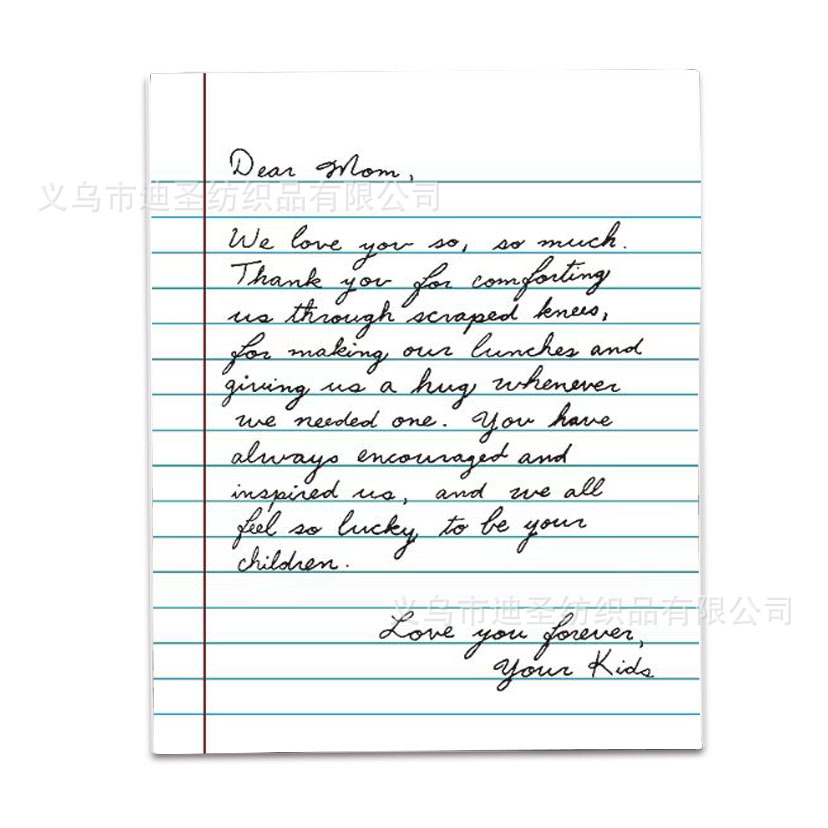 Dear Mom,
义乌市迪圣纺织品有限公司
We love you so, so much.
Thank you for comforting
us through scraped knees,
for making our lunches and
giving us a hug whenever
we needed one. You have
always encouraged and
inspired us, and we all
feel so lucky to be your
children.
义乌市迪圣纺织品有限公司
Love you forever,
Your Kids